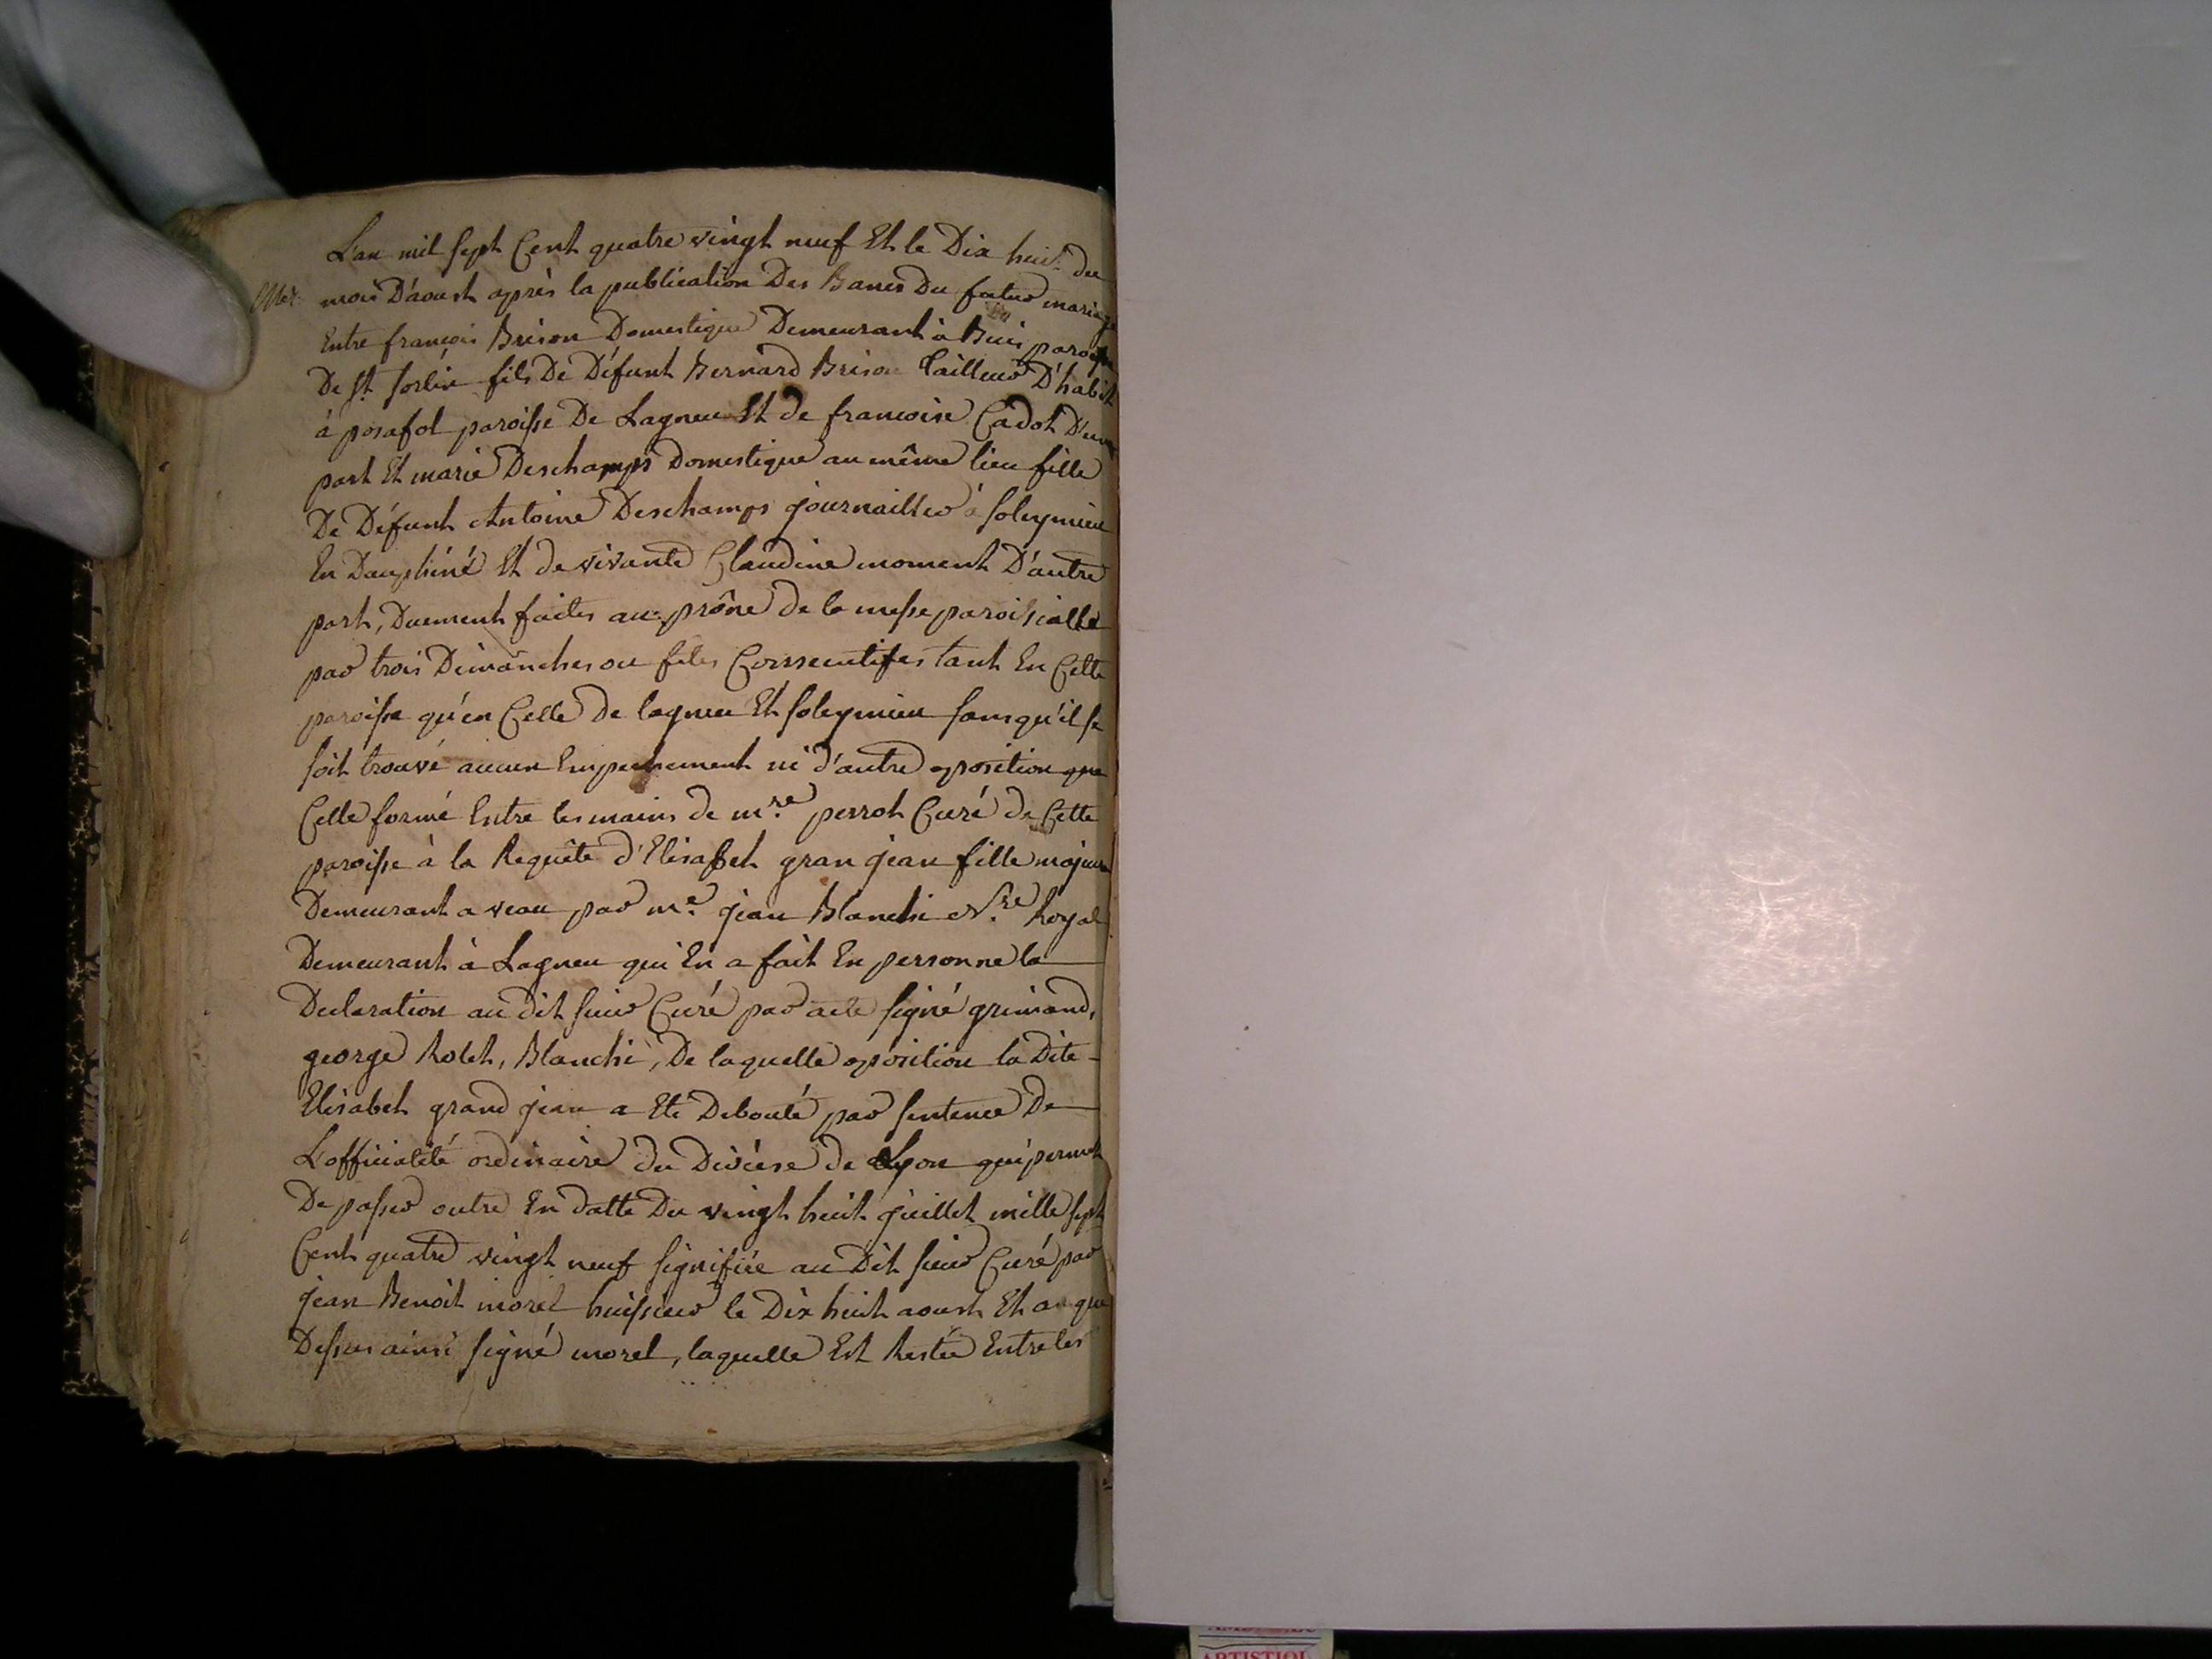 L'an mil sept Cent quatre vingt neuf Et le Dix huit du
Mar. mois D'aoust après la publication Des Bancs Du futur mariage
Entre françois Brison Domestique Demeurant à Buis paroisse
De St. sorlin fils De Défunt Bernard Brison Tailleur D'habit
à posafol paroisse De Lagneu Et de francoise Cadot D'une
part Et marie Deschamps Domestique au même lieu fille
De Défunt Antoine Deschamps journailler à soleymieu
En Dauphiné Et de vivante Claudine moment D'autre
part, Duement faites au prône de la messe paroissialle
par trois Dimanches ou fetes Conssecutifes tant En Cette
paroisse qu'en Celle De lagneu Et soleymieu sans qu'il se
soit trouvé aucun Empechement ni d'autre oposition que
Celle formé Entre les mains de mre. perrot Curé de Cette
paroisse à la Requête d'Elisabet gran jean fille majeure
Demeurant a veau par me. jean Blanchi Nre. Royal
Demeurant à Lagneu qui En a fait En personne la
Declaration au dit sieur Curé par acte signé grimand,
george Rolet, Blanchi, De laquelle oposition la Dite
Elisabet grand jean a Eté Debouté par sentence De
L'officialité ordinaire du Diocèse de Lyon qui permet
De passer outre En datte Du vingt huit juillet mille sept
Cent quatre vingt neuf signifiée au Dit sieur Curé par
jean Benoit morel huissieur le Dix huit aoust Et an que
Dessus ainsi signé morel, laquelle Est Restée Entre les
ARTISTIQU